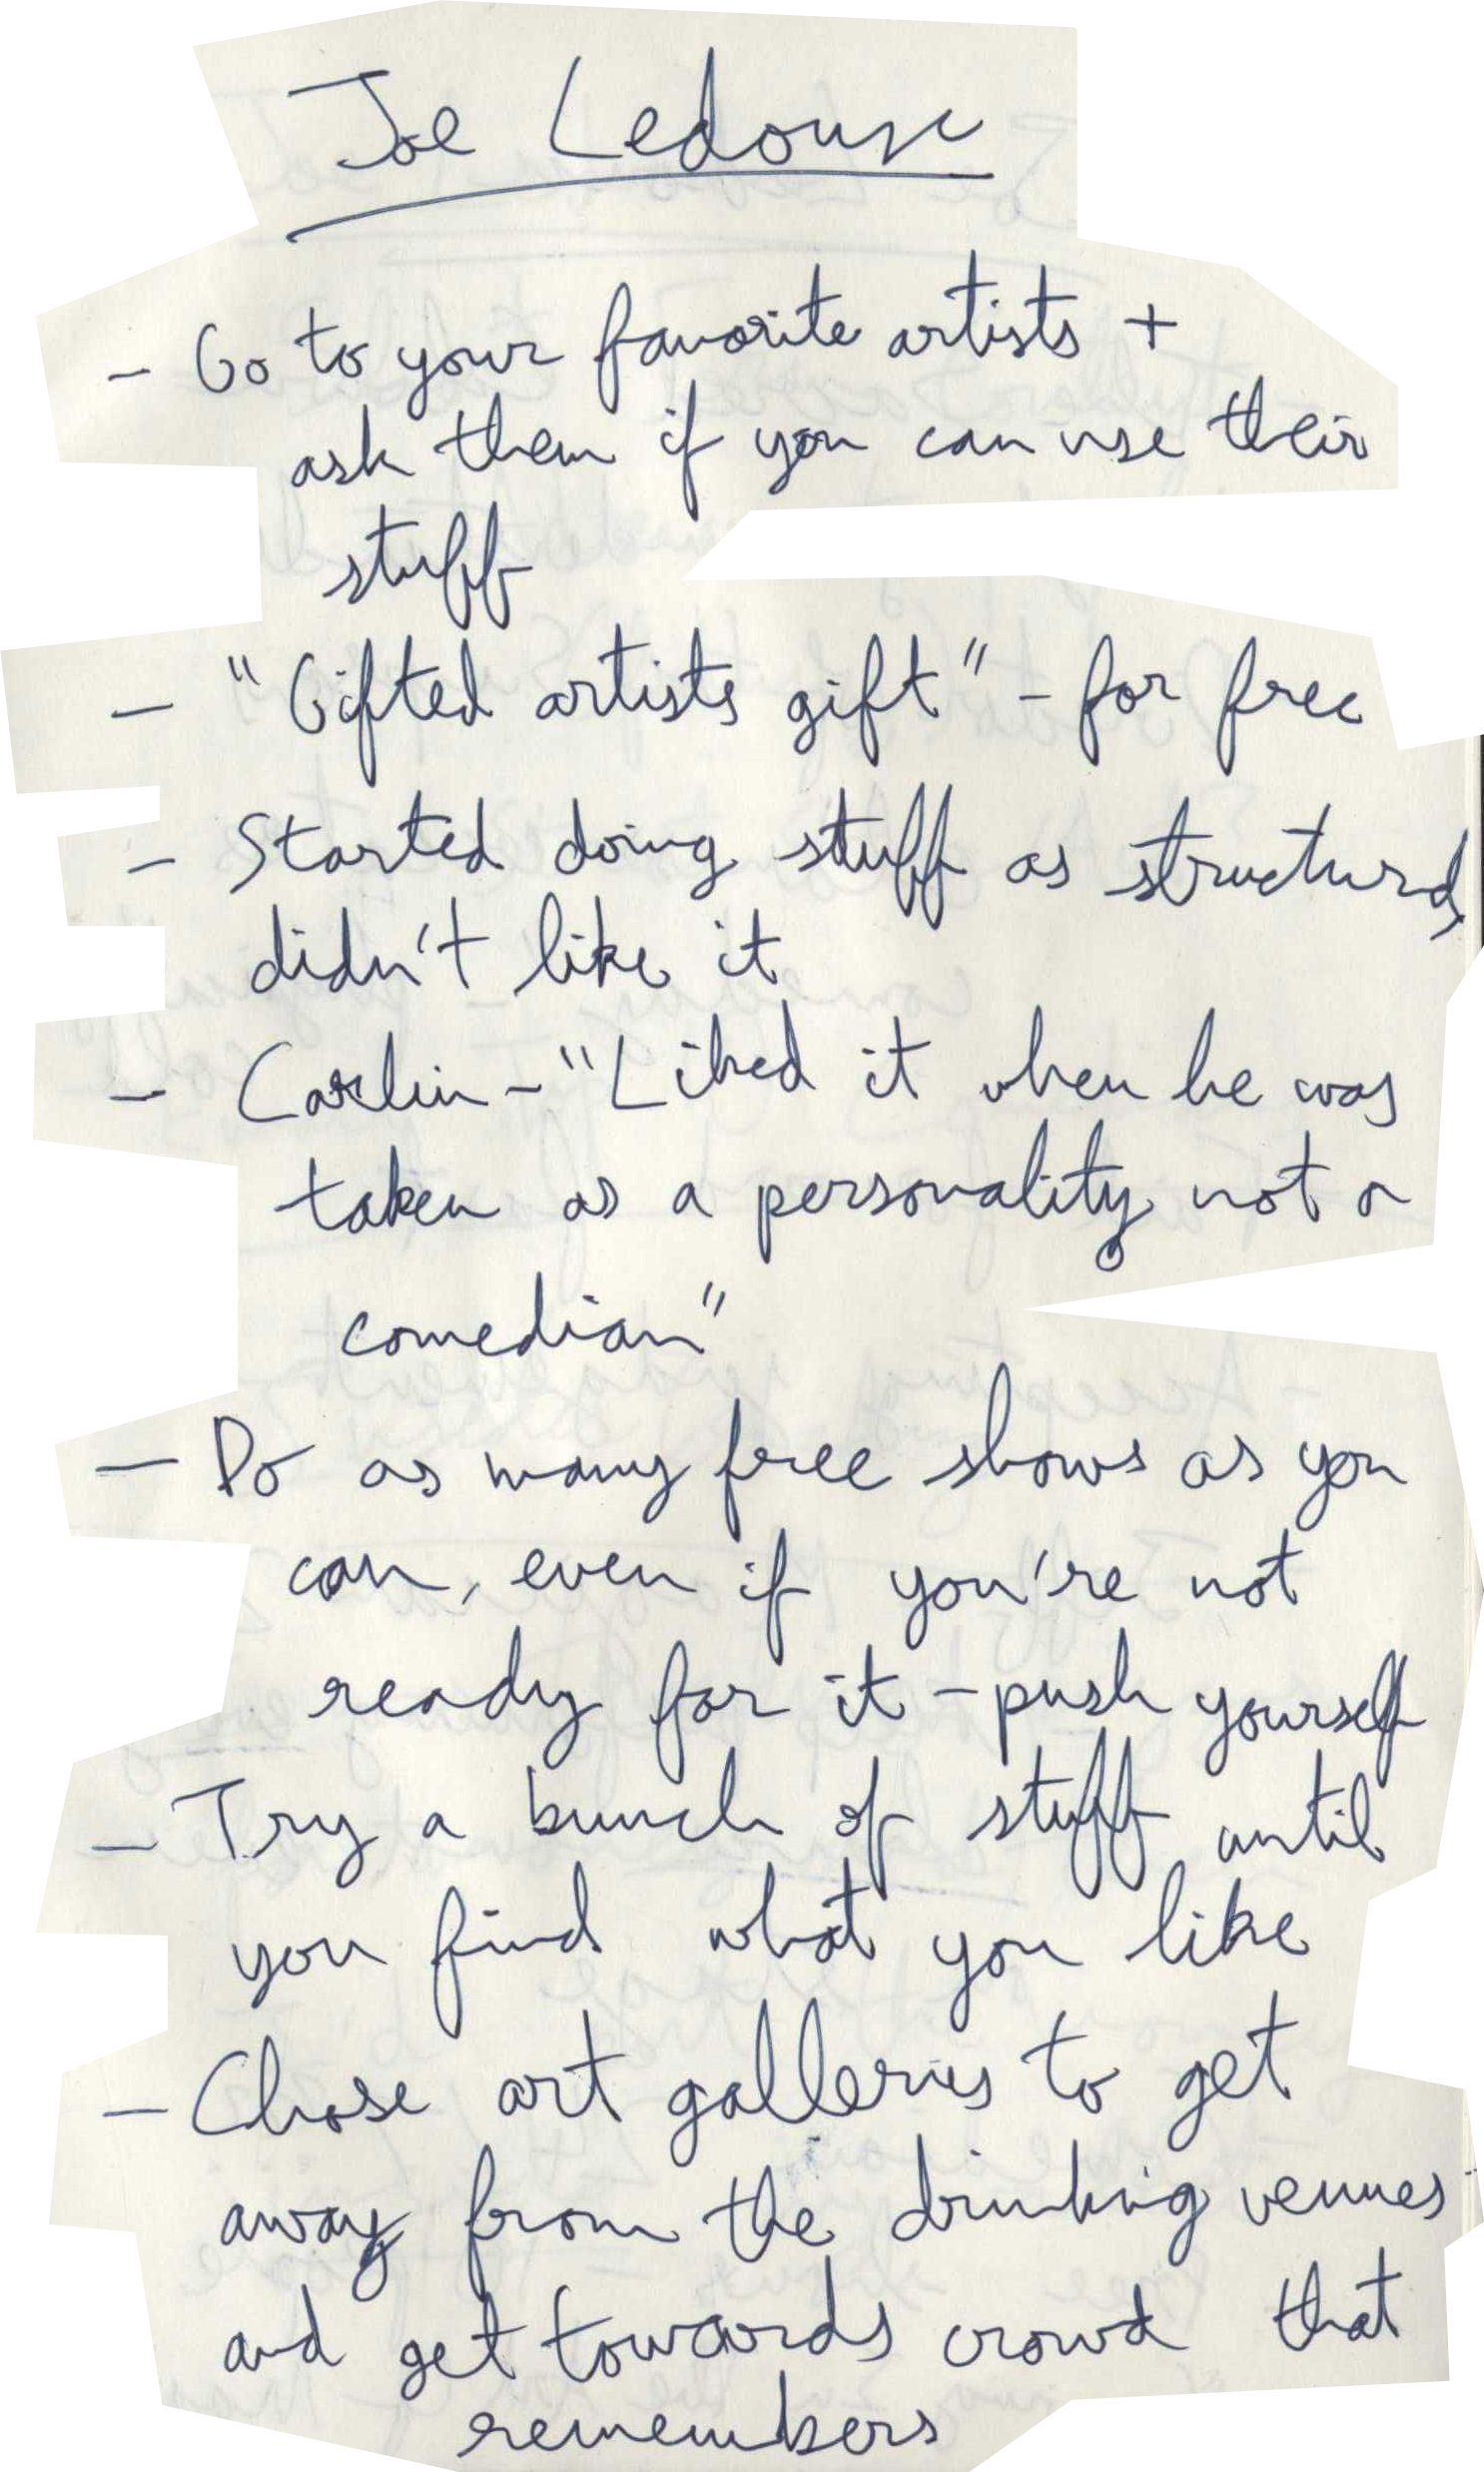 Joe Ledoux
- Go to your favorite artists +
ask them if you can use their
stuff
- "Gifted artists gift" - for free
- Started doing stuff as structured,
didn't like it
- Carlin - "Liked it when he was
taken as a personality not a
comedian"
- Do as many free shows as you
can, even if you're not
ready for it - push yourself
- Try a bunch of stuff until
you find what you like
- Chose art galleries to get
away from the drinking venues
and get towards crowd that
remembers